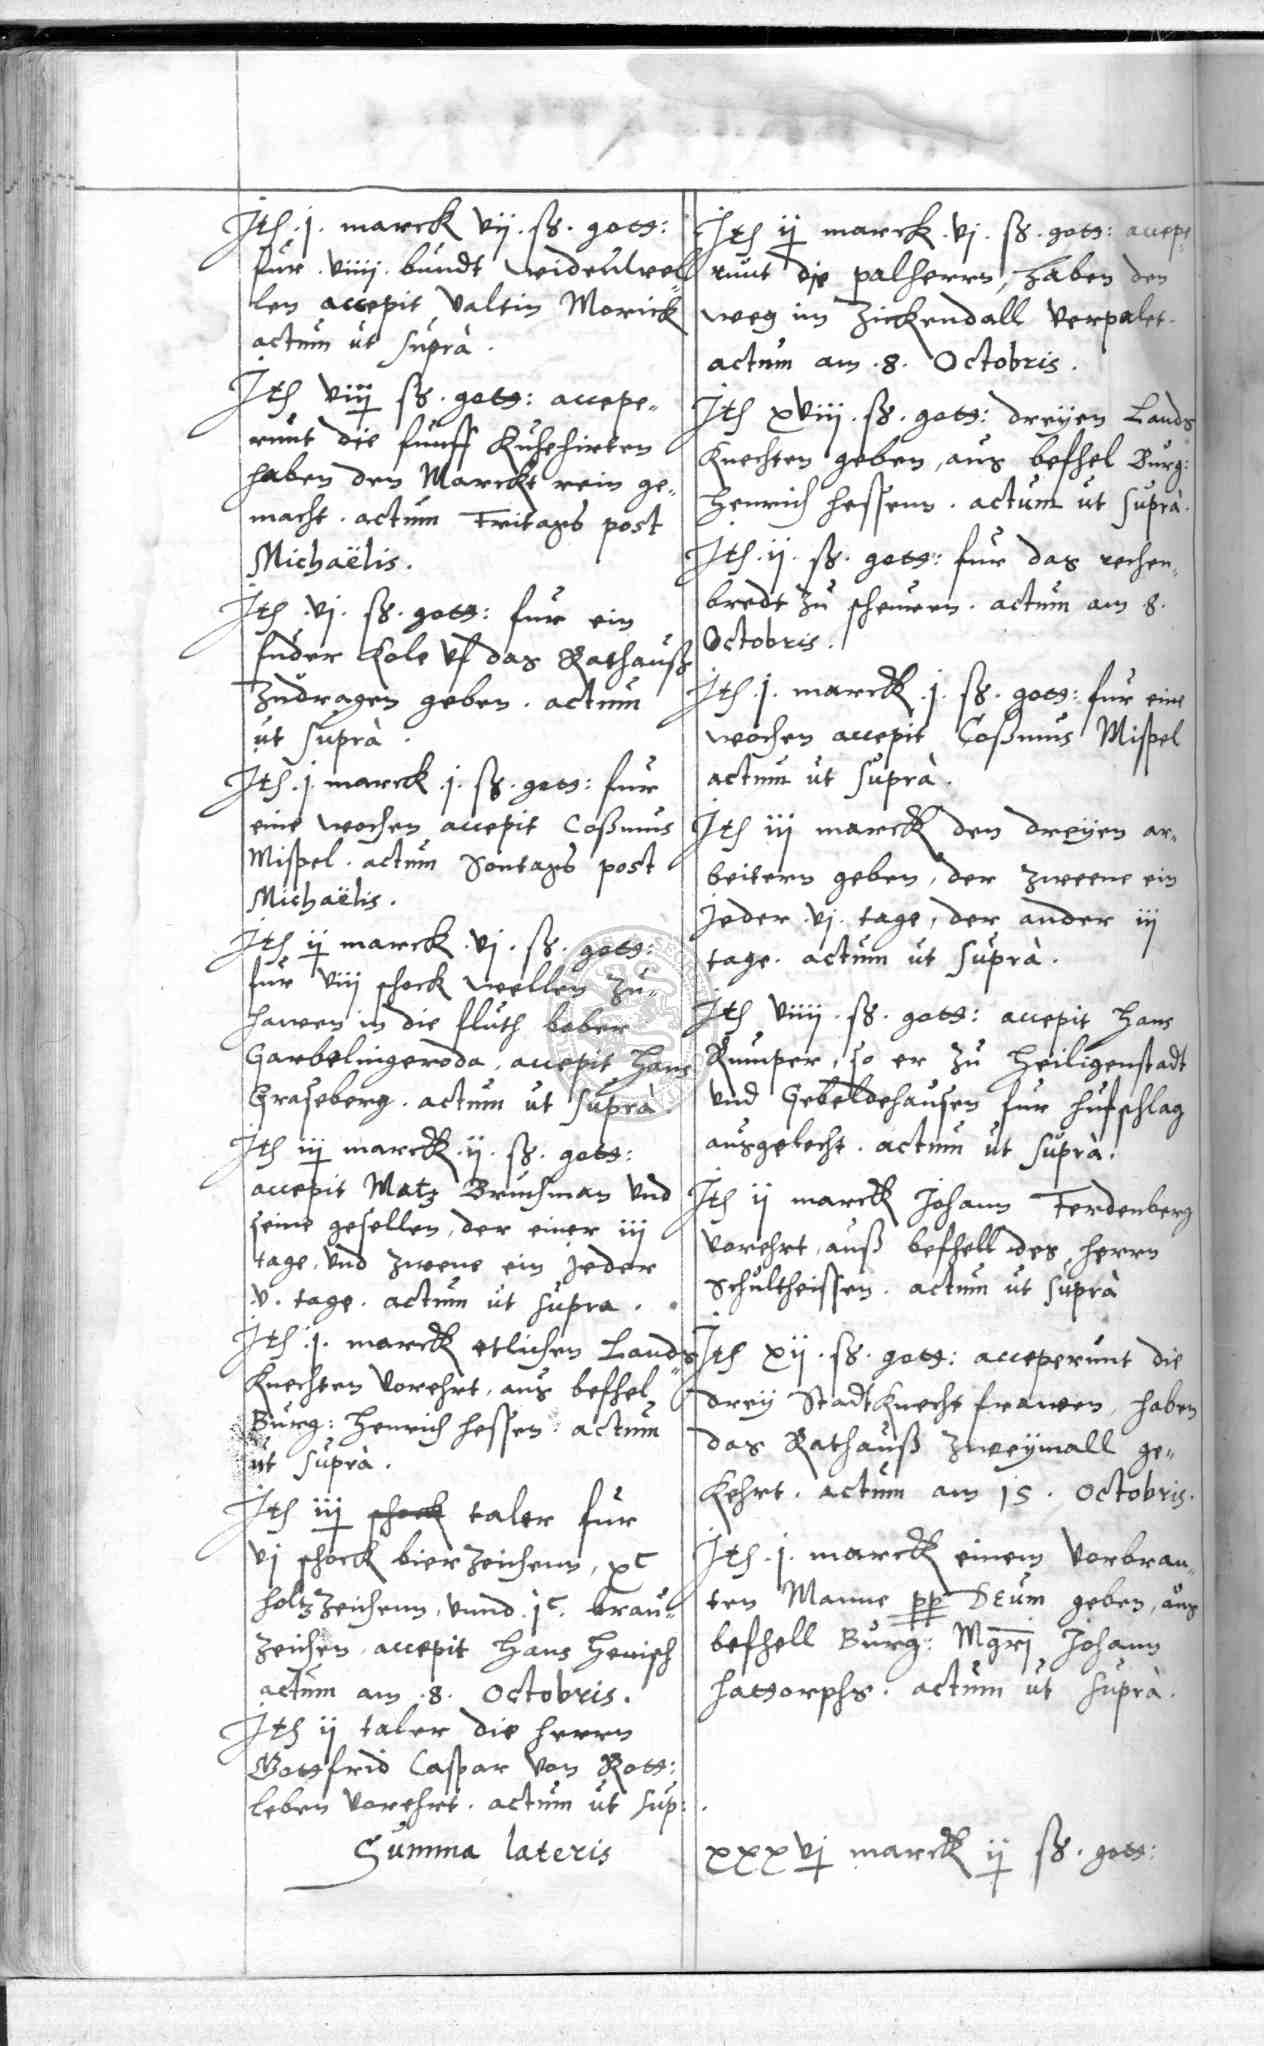 Jtem .j. marck vij. ß. gott:
fur .viiij. bundt widenwel-
len accepit Valtin Morick
actum ut suprà.
Jtem viij ß. gott: accepe-
runt die funff Kuhehirten
haben den Marckt rein ge-
macht. actum Fritags post
Michaëlis.
Jtem .vj. ß. gott: fur ein
fuder Kole vf das Rathauß
zudragen geben. actum
ut suprà.
Jtem .j. marck .j. ß. gott: fur
eine wochen accepit Coßmus
Mispel. actum Sontags post
Michaëlis.
Jtem ij marck .vj. ß. gott:
fur viij schock wellen zu-
hawen in die fluth bober
Garbelingeroda, accepit Hans
Graseberg. actum ut suprà.
Jtem iij marck .ij. ß. gott:
accepit Matz Bruchman vnd
seine gesellen, der einer iij
tage, vnd zwene ein jeder
.v. tage. actum ut supra.
Jtem .j. marck etlichen Lands-
Knechten vorehrt, aus befhel
Burg: Henrich Hessen. actum
ut suprà.
Jtem iij schock taler fur
vj schock bierzeichenn, xc
holtzzeichenn, vnnd .jc. brau-
zeichen, accepit Hans Henisch
actum am .8. Octobris.
Jtem ij taler die herrn
Gottfrid Caspar von Rott:
leben vorehrt. actum ut sup:
Summa lateris
Jtem ij marck .vj. ß. gott: accepe-
runt die palherrn, haben den
weg im Zickendall verpalet.
actum am .8. Octobris.
Jtem xviij. ß. gott: dreyen Lands
Knechten geben, aus befhel Burg:
Henrich Hessenn. actum ut suprà.
Jtem .ij. ß. gott: fur das rechen-
bredt zu scheuren. actum am .8.
Octobris.
Jtem .j. marck .j. ß. gott: fur eine
wochen accepit Coßmus Mispel
actum ut suprà.
Jtem iij marck den dreyen ar-
beitern geben, der zweene ein
jeder .vj. tage, der ander iij
tage. actum ut suprà.
Jtem viiij. ß. gott: accepit Hans
Rumper, so er zu Heiligenstadt
vnd Gebeldehausen fur hufschlag
ausgelecht. actum ut suprà.
Jtem ij marck Johann Ferdenberg
vorehrt, auß befhell des herrn
Schultheissen. actum ut suprà
Jtem xij. ß. gott: acceperunt die
drey StadtKnecht frawen, haben
das Rathauß zweymall ge-
Kehrt. actum am 15. Octobris.
Jtem .j. marck einem vorbran-
ten Manne pp DEum geben, aus
befhell Burg: Mgri Johann
Hattorphs. actum ut suprà.
xxxvj marck ij ß. gott: